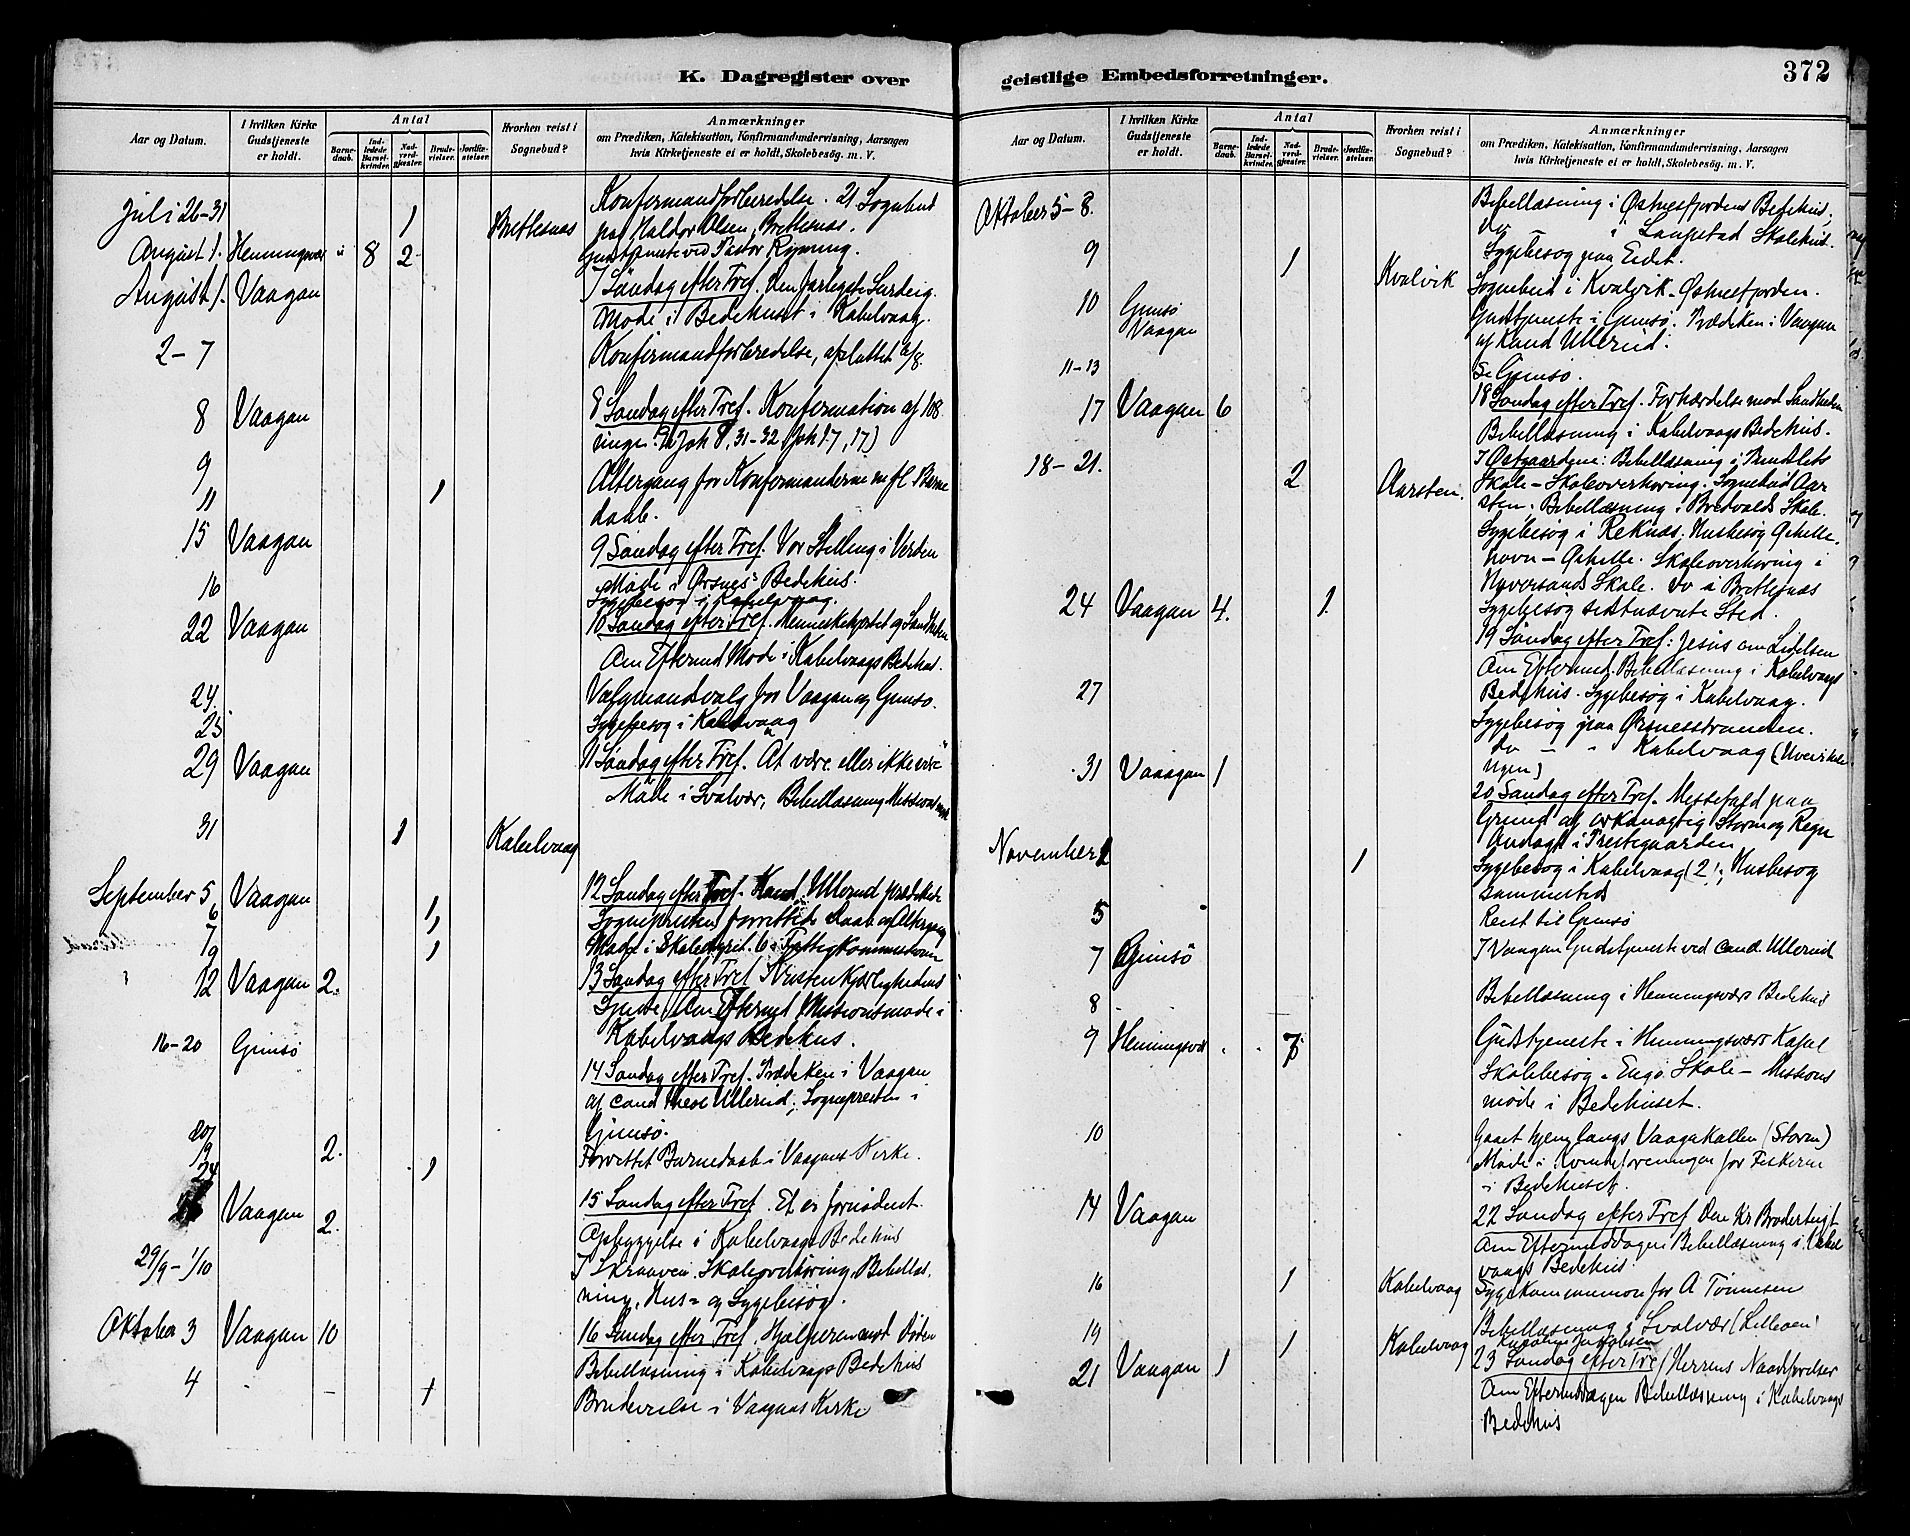 K. Dagregister over
Aar og Datum.
I hvilken Kirke Gudstjeneste er holdt.
Antal
Barnedaab.
Indledede Barselkvinder.
Nadverdgjester.
Brudevielser.
Jordfæstelser.
Hvorhen reist i Sognebud?
Anmærkninger
om Prædiken, Katekisation, Konfirmandundervisning, Aarsagen
hvis Kirketjeneste ei er holdt, Skolebesög. m. V.
Juli 26-31 1 Brettesnæs Konfermandforberedelse. 21 Sognebud
paa Haldor Olsen, Brettesnæs.
August 1. Henningsvær 8 2 Gudstjeneste ved Pastor Rynning.
August 1. Vaagan 7 Söndag efter Tref. Den farligste Surdeig.
Möde i Bedehuset i Kabelvaag.
2-7 Konfermandforberedelse, afsluttet 7/8.
8 Vaagan 8 Søndag efter Tref. Konfermation af 108
unge. Joh 8, 31-32 (Joh 17, 17)
9 Altergang for Konfermanderne m fl. 1 Barne
11 1 daab.
15 Vaagan 9 Søndag efter Tref. Vor Stelling i Verden
Møde i Ørsnes Bedehus.
16 Sygebesøg i Kabelvaag.
22 Vaagan 10 Søndag efter Tref. Menneskehjertet og Sandheden
Om Eftermd Møde i Kabelvaags Bedehus.
24. Valgmandsvalg for Vaagan og Gimsø.
25 Sygebesøg i Kabelvaag
29 Vaagan 11 Søndag efter Tref. At være eller ikke være
Møde i Svolvær, Bebellæsning
31 1 Kabelvaag
September 5 Vaagan 12 Søndag efter Tref. Kand. Ullerud prædikede
6 1, Sognepresten forrettede Daab og Altergang
7 Møde i Skolestyret. 6 i Fattigkommissionen
9 1
12 Vaagan 2. 13 Søndag efter Tref Kristenkjærlighedens
Om Eftermd Missionsmøde i
Kabelvaags Bedehus.
16-20 Gimsø 14 Søndag efter Tref. Prædeken i Vaagan
af cand theol Ullerud; Sognepresten i
Gimsø.
20/9 2. Forrettet Barnedaab i Vaagans Kirke.
24 1
Vaagan 2. 15 Søndag efter Tref. Et er fornødent.
Opbyggelse i Kabelvaags Bedehus
29/9-1/10 I Skraaven. Skoleoverhøring, Bebellæs,
ning, Hus- og Sygebesøg.
Oktober 3 Vaagan 10 16 Søndag efter Tref. Hjælperen mod Døden
Bebellæsning i Kabelvaags Bedehus
4 - - + Brudevielse i Vaagans Kirke
geistlige Embedsforretninger.
372
Aar og Datum.
I hvilken Kirke Gudstjeneste er holdt.
Antal
Barnedaab.
Indledede Barselkvinder.
Nadverdgjester.
Brudevielser.
Jordfæstelser.
Hvorhen reist i Sognebud?
Anmærkninger
om Prædiken, Katekisation, Konfirmandundervisning, Aarsagen
hvis Kirketjeneste ei er holdt, Skolebesög. m. V.
Oktober 5-8. Bebellæsning i Østnesfjordens Bedehus.
Do - i Laupstad Skolehus.
9 1 Sygebesøg paa Eidet.
Kvalvik Sognebud i Kvalvik - Østnesfjorden.
10 Gimsø Gudstjeneste i Gimsø. Prædeken i Vaagan
Vaagan af Kand Ullerud.
11-13 I Gimsø.
17 Vaagan 6 18 Søndag efter Tref. Forhærdelse mod Sandheden
Bebellæsning i Kabelvaags Bedehus.
18-21. 2 Aarsten. I Østgaardene: Bebellæsning i
Skole - Skoleoverhøring. Sognebud Aar
sten. Bebellæsning i Bredvolds Skole.
Sygebesøg i Reknæs. Husbesøg
Skoleoverhøring i
Skole. Do i Brettesnæs
24 Vaagan 4. 1 Sygebesøg sidstnævnte Sted.
19 Søndag efter Tref: Jesus om Lidelsen
Om Efterm. Bebellæsning i Kabelvaags
27 Bedehus. Sygebesøg i Kabelvaag.
Sygebesøg paa Ørsnesstranden.
Do - " Kabelvaag
31 Vaaagan 1 20 Søndag efter Tref. Messefald paa
Grund af orkanagtig Storm og Regn
Andagt i Prestegaarden
November 1 1 Sygebesøg i Kabelvaag (2), Husbesøg
sammesteds
5 Reist til Gimsø
7 Gimsö I Vaagan Gudstjeneste ved cand. Ullerud
8 Bebellæsning i Henningsværs Bedehus
9 Henningsvær 7 Gudstjeneste i Henningsværs Kapel
Skolebesøg - Engø Skole - Missions
møde i Bedehuset.
10 Gaaet hjem langs Vaagakallen (Storm)
Møde i Kvindeforeningen for Fiskerm
i Bedehuset.
14 Vaagan 22 Søndag efter Tref Den kr Brodertugt
Om Eftermiddagen Bebellæsning i Kabel
vaags Bedehus.
16 1 Kabelvaag Sygekommunion for A Tönnesen
19 Bebellæsning i Svolvær
1 Kabelvaag
21 Vaagan 1 23 Søndag efter Tre/ Herrens
Om Eftermiddagen Bebellæsning i Kabelvaags
Bedehus